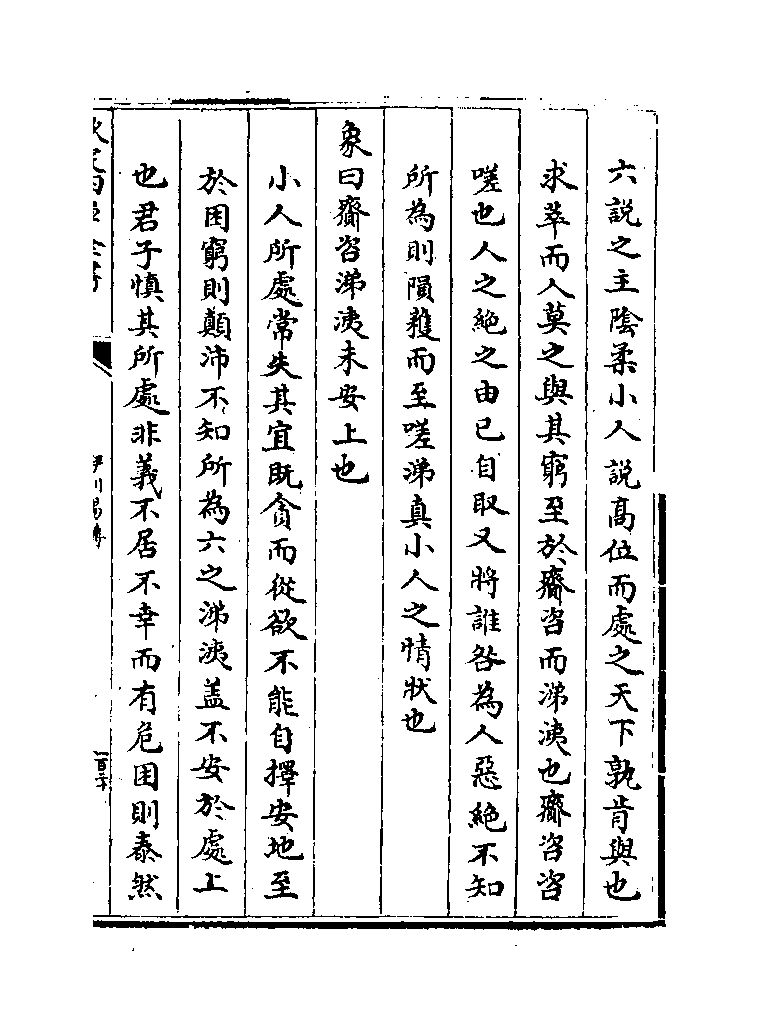 六說之主陰柔小人說高位而處之天下孰肯與也
求萃而人莫之與其窮至於齎咨而涕洟也齎咨咨
嗟也人之絶之由已自取又將誰咎為人惡絶不知
所為則隕穫而至嗟涕真小人之情狀也
象曰齎咨涕洟未安上也
小人所處常失其宜既貪而從欲不能自擇安地至
於困窮則顛沛不知所為六之涕洟盖不安於處上
也君子慎其所處非義不居不幸而有危困則泰然
伊川易傳